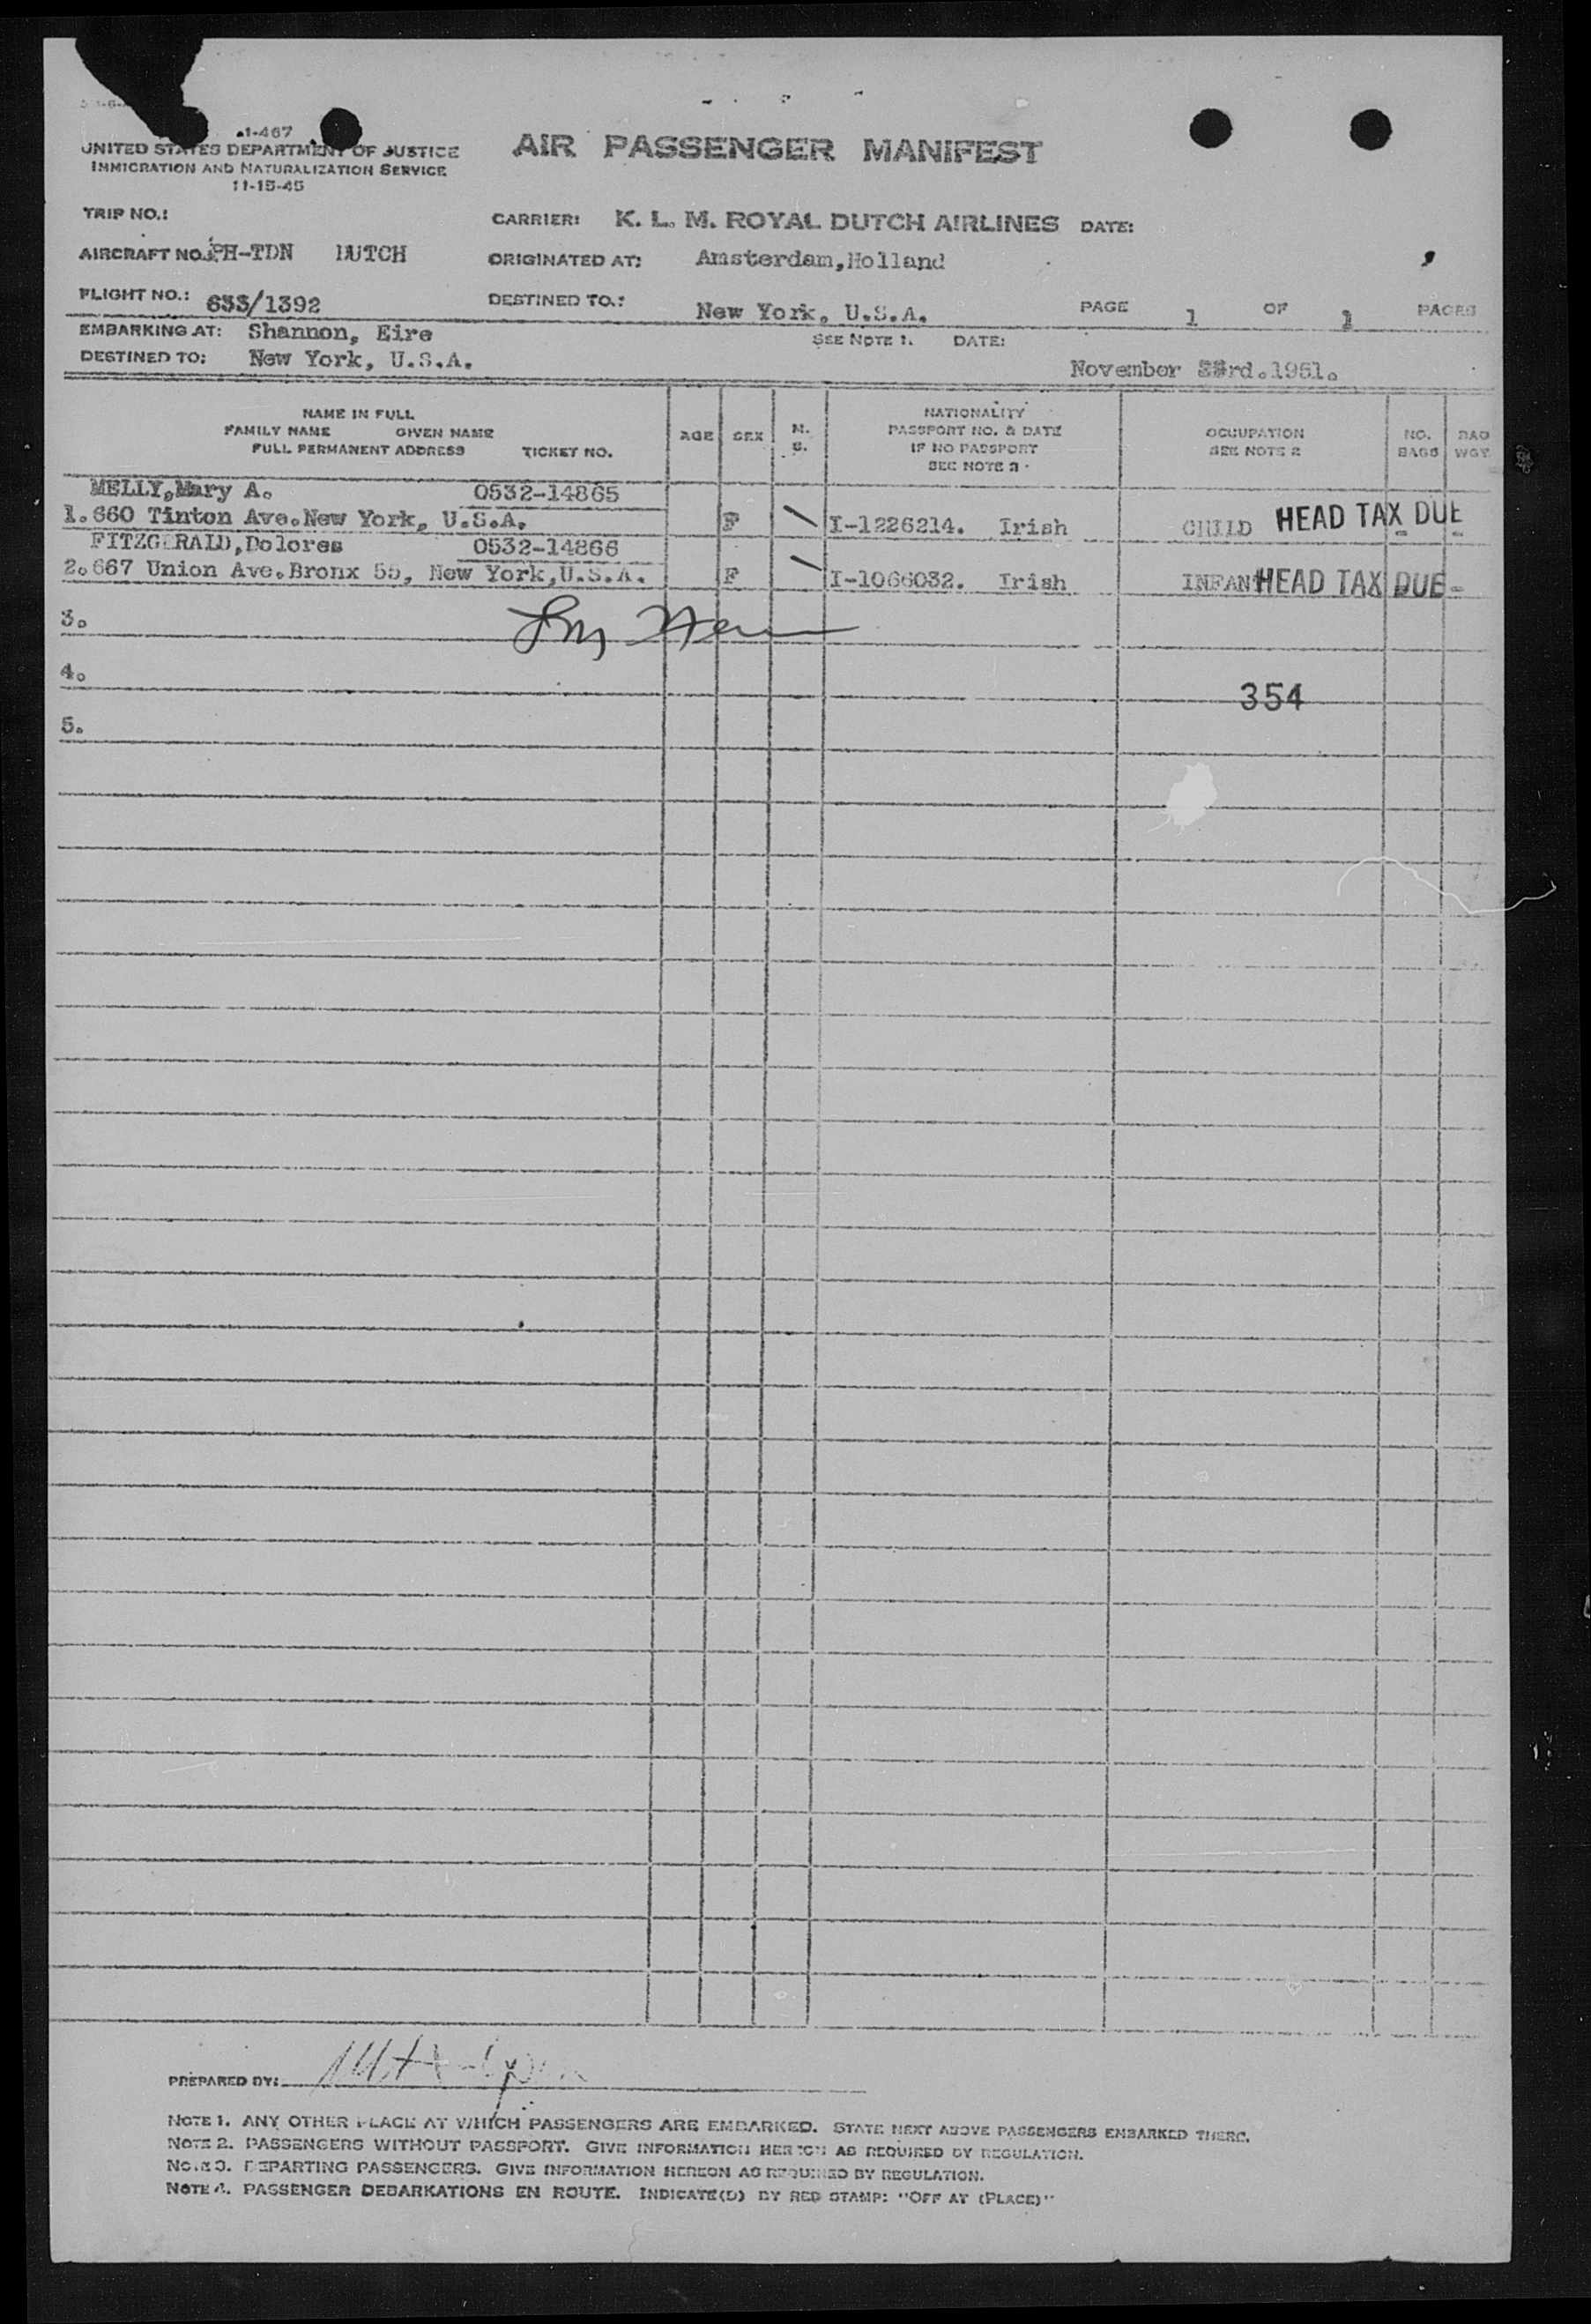 1-467
UNITED STATES DEPARTMENT OF JUSTICE
IMMIGRATION AND NATURALIZATION SERVICE
11-15-45
AIR PASSENGER MANIFEST
TRIP NO.:
CARRIER: K. L. M. ROYAL DUTCH AIRLINES DATE:
AIRCRAFT NO. PH-TDN DUTCH
ORIGINATED AT: Amsterdam,Holland
FLIGHT NO.: 633/1392
DESTINED TO.: New York, U.S.A.
PAGE 1 OF 1 PAGES
EMBARKING AT: Shannon, Eire
SEE NOTE 1. DATE:
DESTINED TO: New York, U.S.A.
November rd.1951.
NAME IN FULL
FAMILY NAME GIVEN NAME
FULL PERMANENT ADDRESS TICKET NO.
AGE
SEX
M.
S.
NATIONALITY
PASSPORT NO. & DATE
IF NO PASSPORT
SEE NOTE 2
OCCUPATION
SEE NOTE 2
NO.
BAGS
BAG
WGT
MELLY,Mary A. 0532-14865
1.660 Tinton Ave.New York, U.S.A. F I-1226214. Irish CHILD HEAD TAX DUE
FITZGERALD,Dolores 0532-14866
2.667 Union Ave.Bronx 55, New York,U.S.A. F I-1066032. Irish INFANT HEAD TAX DUE
3.
4.
354
5.
PREPARED BY:
NOTE 1. ANY OTHER PLACE AT WHICH PASSENGERS ARE EMBARKED. STATE NEXT ABOVE PASSENGERS EMBARKED THERE.
NOTE 2. PASSENGERS WITHOUT PASSPORT. GIVE INFORMATION HEREON AS REQUIRED BY REGULATION.
NOTE 3. DEPARTING PASSENGERS. GIVE INFORMATION HEREON AS REQUIRED BY REGULATION.
NOTE 4. PASSENGER DEBARKATIONS EN ROUTE. INDICATE(D) BY RED STAMP: "OFF AT (PLACE)"